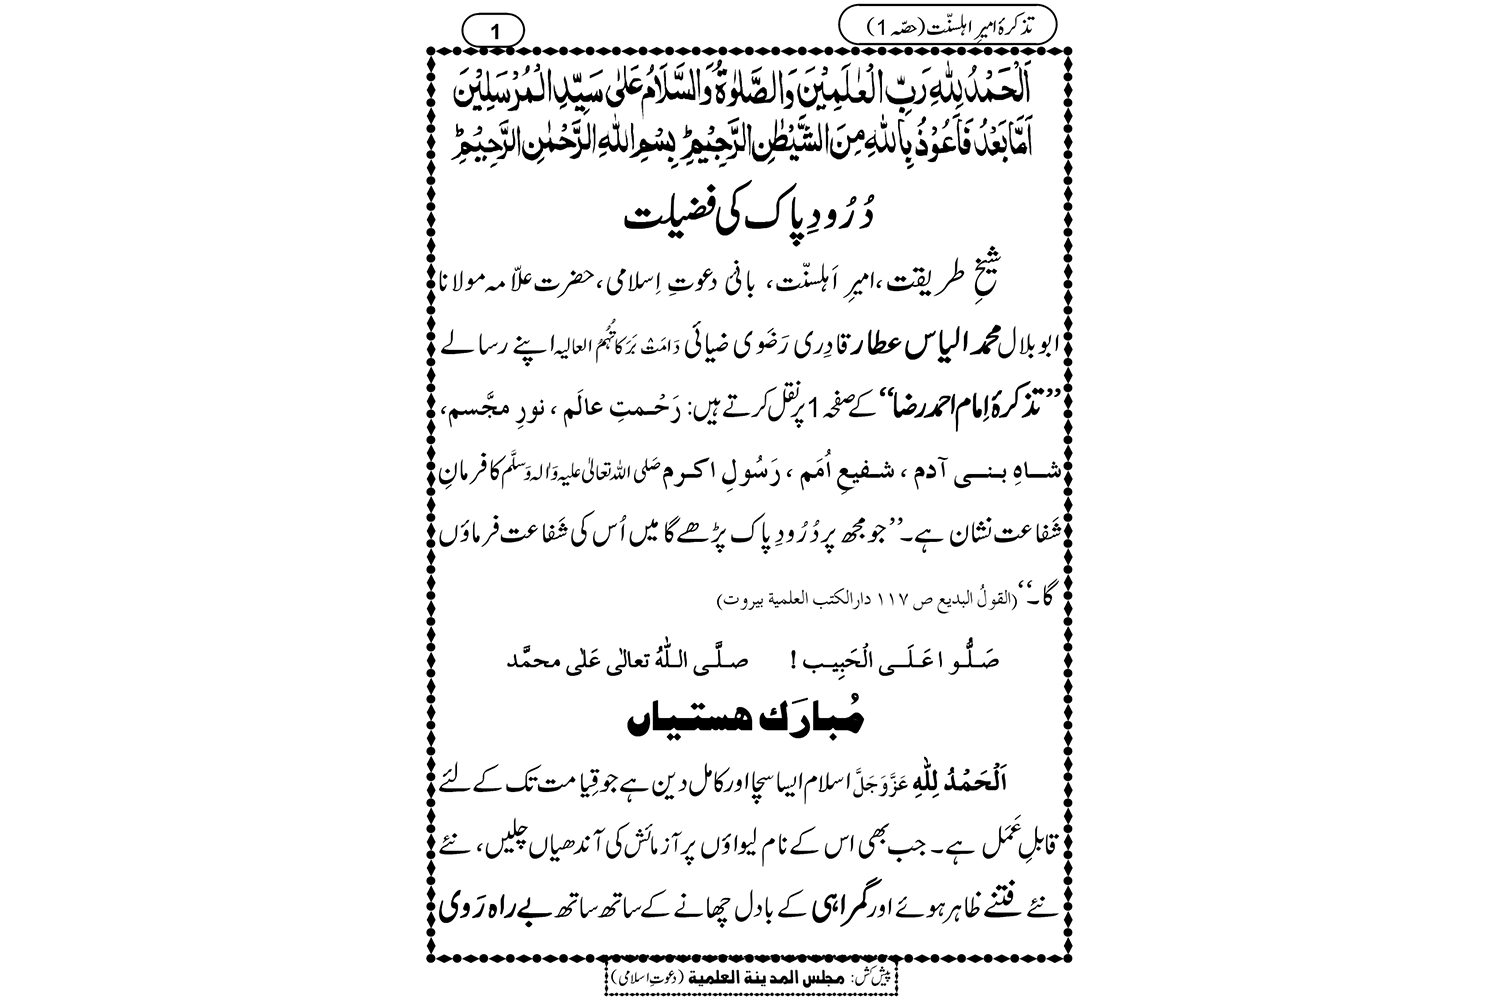 تذکرۂ امیرِ اہلسنّت (حصّہ 1)
1
اَلْحَمْدُ لِلّٰهِ رَبِّ الْعٰلَمِيْنَ وَالصَّلٰوةُ وَالسَّلَامُ عَلٰى سَيِّدِ الْمُرْسَلِيْنَ
اَمَّا بَعْدُ فَاَعُوْذُ بِاللّٰهِ مِنَ الشَّيْطٰنِ الرَّجِيْمِ ؕ بِسْمِ اللّٰهِ الرَّحْمٰنِ الرَّحِيْمِ ؕ
دُرُودِ پاک کی فضیلت
شیخِ طریقت، امیرِ اَہلسنّت، بانیٔ دعوتِ اِسلامی، حضرت علّامہ مولانا
ابو بلال محمد الیاس عطار قادِری رَضَوی ضیائی دَامَتْ بَرَکَاتُہُمُ العالیہ اپنے رسالے
’’تذکرۂ اِمام احمد رضا‘‘ کے صفحہ 1 پر نقل کرتے ہیں: رَحْمتِ عالَم ، نورِ مجَّسم،
شاہِ بنی آدم ، شفیعِ اُمَم ، رَسُولِ اکرم صَلَّی اللہ تعالیٰ علیہ وَاٰلہ وَسَلَّم کا فرمانِ
شَفاعت نشان ہے۔’’جو مجھ پر دُرُودِ پاک پڑھے گا میں اُس کی شَفاعت فرماؤں
گا۔‘‘ (القولُ البديع ص ١١٧ دارالكتب العلمية بيروت)
صَلُّوا عَلَى الْحَبِيب ! صلَّى اللّٰهُ تعالٰى عَلٰى محمَّد
مُبارَك هستياں
اَلْحَمْدُ لِلّٰهِ عَزَّوَجَلَّ اسلام ایسا سچا اور کامل دین ہے جو قِیامت تک کے لئے
قابلِ عَمَل ہے۔ جب بھی اس کے نام لیواؤں پر آزمائش کی آندھیاں چلیں، نئے
نئے فتنے ظاہر ہوئے اور گمراہی کے بادل چھانے کے ساتھ ساتھ بے راہ رَوی
پیش کش: مجلس المدينة العلمية (دعوتِ اسلامی)